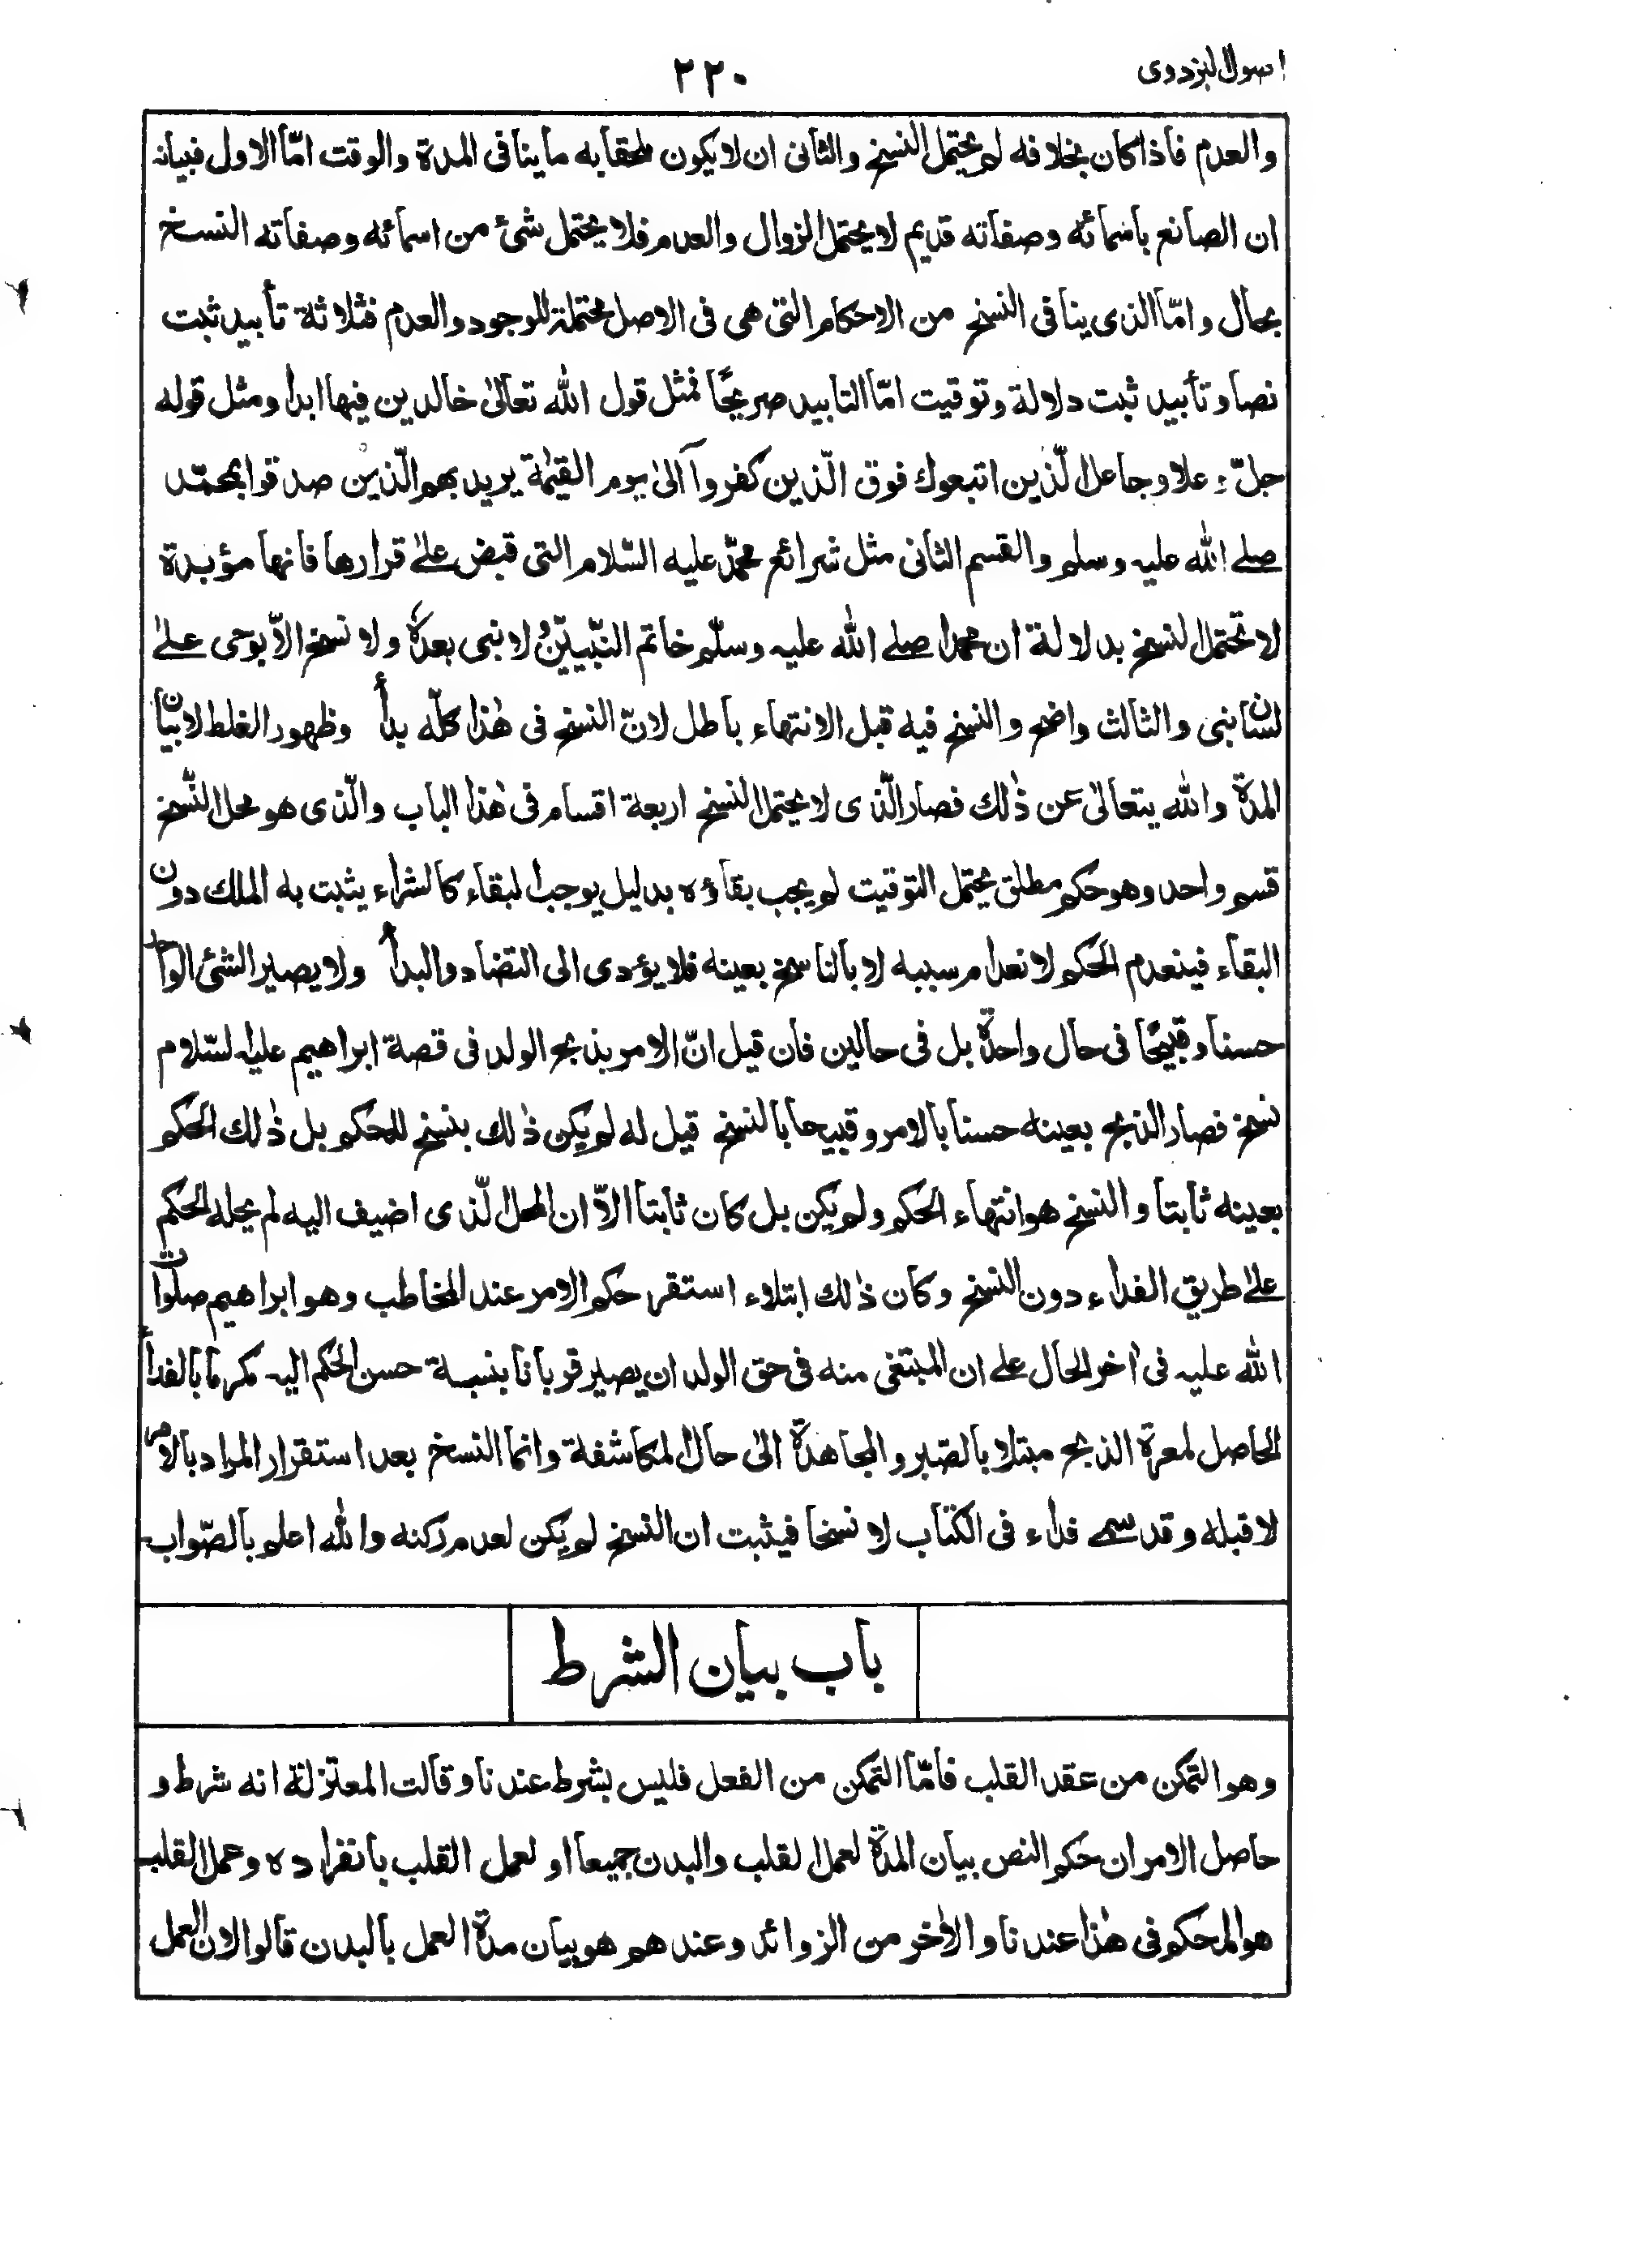 اصول البزدوى
٢٢٠
والعدم فاذا كان بخلافه لم يحتمل النسخ والثانى ان لا يكون ملحقا به ما ينافى المدة والوقت امّا الاول فبيانه
ان الصانع باسمائه وصفاته قديم لا يحتمل الزوال والعدم فلا يحتمل شئ من اسمائه وصفاته النسخ
بحال وامّا الذى ينافى النسخ من الاحكام التى هى فى الاصل محتملة للوجود والعدم فثلاثة تأبيد ثبت
نصا وتأبيد ثبت دلالة وتوقيت امّا التابيد صريحًا فمثل قول الله تعالىٰ خالدين فيها ابدا ومثل قوله
جلّ وعلا وجاعل الّذين اتبعوك فوق الّذين كفروآ الىٰ يوم القيٰمة يريد بهم الّذين صدقوا بمحمّد
صلے الله عليه وسلم والقسم الثانى مثل شرائع محمّد عليه السّلام التى قبض علےٰ قرارها فانها مؤبدة
لا تحتمل النسخ بدلالة ان محمدا صلے الله عليه وسلّم خاتم النّبيّينُ لا نبى بعدهٗ ولا نسخ الاّ بوحى علےٰ
لسان نبى والثالث واضح والنسخ فيه قبل الانتهاء باطل لانّ النسخ فى هٰذا كلّه بدأ وظهور الغلط لا بيان
المدة والله يتعالىٰ عن ذٰلك فصار الّذى لا يحتمل النسخ اربعة اقسام فى هٰذا الباب والّذى هو محل النّسخ
قسم واحد وهو حكم مطلق يحتمل التوقيت لم يجب بقاؤه بدليل يوجب البقاء كالشراء يثبت به الملك دون
البقاء فينعدم الحكم لانعدام سببه لا بالناسخ بعينه فلا يؤدى الى التضاد والبدأ ولا يصير الشئ الواحد
حسنا وقبيحًا فى حال واحدة بل فى حالين فان قيل انّ الامر بذبح الولد فى قصة ابراهيم عليه السّلام
نسخ فصار الذبح بعينه حسنا بالامر وقبيحا بالنسخ قيل له لم يكن ذٰلك بنسخ للحكم بل ذٰلك الحكم
بعينه ثابتا والنسخ هو انتهاء الحكم ولم يكن بل كان ثابتا الاّ ان المحل الّذى اضيف اليه لم يحله الحكم
علےٰ طريق الفداء دون النسخ وكان ذٰلك ابتلاء استقر حكم الامر عند المخاطب وهو ابراهيم صلوات
الله عليه فى اٰخر الحال علے ان المبتغى منه فى حق الولد ان يصير قربانا بنسبة حسن الحكم اليه مكرما بالفدأ
الحاصل لمعرة الذبح مبتلا بالصّبر والمجاهدة الىٰ حال المكاشفة وانما النسخ بعد استقرار المراد بالامر
لا قبله وقد سمے فداء فى الكتاب لا نسخا فيثبت ان النسخ لم يكن لعدم ركنه والله اعلم بالصّواب
باب بيان الشرط
وهو التمكن من عقد القلب فامّا التمكن من الفعل فليس بشرط عندنا وقالت المعتزلة انه شرط و
حاصل الامر ان حكم النص بيان المدة لعمل القلب والبدن جميعا او لعمل القلب بانفراده وعمل القلب
هو المحكم فى هٰذا عندنا والاٰخر من الزوائد وعندهم هو بيان مدة العمل بالبدن قالوا لان العمل